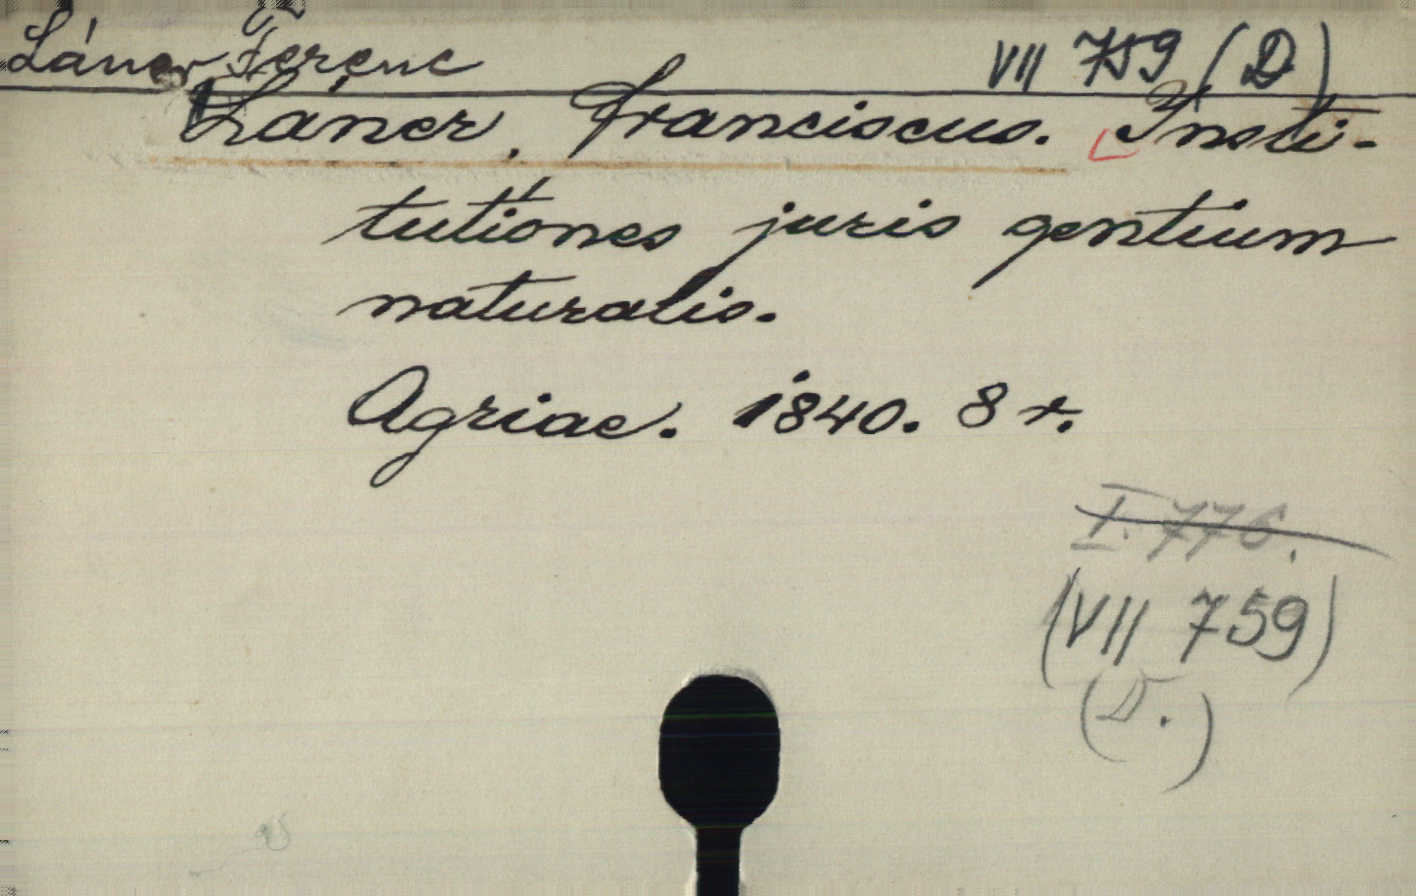 Láner Ferenc VII 759 (D)
Láner, Franciscus. Insti-
tutiones juris gentium
naturalis.
Agriae. 1840. 8 r.
I. 776.
(VII 759)
(D.)